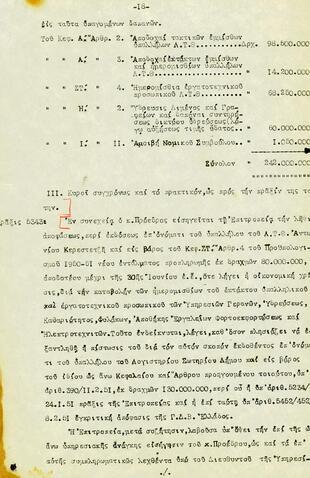 -18-
εἰς ταῦτα ὑπαγομένων δαπανῶν.
Τοῦ Κεφ. Α. Ἄρθρ. 2. "Ἀποδοχαί τακτικῶν ἐμμίσθων
ὑπαλλήλων Λ.Τ.Θ........Δρχ. 98.500.000
" " Α. " 3. "Ἀποδοχαί ἐκτάκτων ἐμμίσθων
καί ἡμερομισθίων ὑπαλλήλων
Λ.Τ.Θ. " 14.200.000
" " ΣΤ. " 4. "Ἡμερομίσθια ἐργατοτεχνικοῦ
προσωπικοῦ Λ.Τ.Θ......... " 68.250.000
" " Η. " 2. "Ὕδρευσις Λιμένος καί Γρα-
φείων καί δαπάναι συντηρή-
σεως δικτύου ὑδρεύσεως
αὐξήσεως τιμῆς ὕδατος..... " 60.000.000
" " Ι. " 11. "Ἀμοιβή Νομικοῦ Συμβούλου.. " 1.050.000
Σύνολον " 242.000.000
III. Κυροῖ συγχρόνως καί τό πρακτικόν, ὡς πρός τήν πρᾶξιν της
την.
πρᾶξις 5343: Ἐν συνεχείᾳ ὁ κ. Πρόεδρος εἰσηγεῖται τῇ Ἐπιτροπείᾳ τήν λῆψιν
ἀποφάσεως, περί ἐκδόσεως ἐπ' ὀνόματι τοῦ ὑπαλλήλου τοῦ Λ.Τ.Θ. Ἀντω-
νίου Κερεστετζῆ καί εἰς βάρος τοῦ Κεφ. ΣΤ. Ἄρθρ. 4 τοῦ Προϋπολογι-
σμοῦ 1950-51 νέου ἐντάλματος προπληρωμῆς ἐκ δραχμῶν 80.000.000,
ἀποδοτέου μέχρι τῆς 30ῆς Ἰουνίου ἐ.ἔ., ὅτε λήγει ἡ οἰκονομική χρῆ-
σις, διά τήν καταβολήν τῶν ἡμερομισθίων τοῦ ἐκτάκτου ὑπαλληλικοῦ
καί ἐργατοτεχνικοῦ προσωπικοῦ τῶν Ὑπηρεσιῶν Γερανῶν, Ὑδρεύσεως,
Καθαριότητος, Φυλάκων, Ἀποθήκης Ἐργαλείων Φορτοεκφορτώσεως καί
Ἠλεκτροτεχνιτῶν. Τοῦτο ἐνδείκνυται, λέγει, καθ' ὅσον πλησιάζει νά ἐ-
ξαντληθῇ ἡ πίστωσις τοῦ διά τόν αὐτόν σκοπόν ἐκδοθέντος ἐπ' ὀνόμα-
τι τοῦ ὑπαλλήλου τοῦ Λογιστηρίου Σωτηρίου Δήμου καί εἰς βάρος
τοῦ ἰδίου ὡς ἄνω Κεφαλαίου καί Ἄρθρου προηγουμένου τοιούτου, ὑπ'
ἀριθ. 390/11.2.51, ἐκ δραχμῶν 130.000.000, περί οὗ ἡ ὑπ' ἀριθ. 5234/
24.1.51 πρᾶξις τῆς Ἐπιτροπείας καί ἡ ἐπί ταύτῃ ὑπ' ἀριθ. 5452/452
8.2.51 ἐγκριτική ἀπόφασις τῆς Γ.Δ.Β. Ἑλλάδος.
Ἡ Ἐπιτροπεία, μετά συζήτησιν, λαβοῦσα ὑπ' ὄψει τήν ἐπί τῆς ὡς
ἄνω ὑπηρεσιακῆς ἀνάγκης εἰσήγησιν τοῦ κ. Προέδρου, ὡς καί τά ἐπ'
αὐτῆς συμπληρωματικῶς λεχθέντα ὑπό τοῦ Διευθυντοῦ τῆς Ὑπηρεσί-
./.